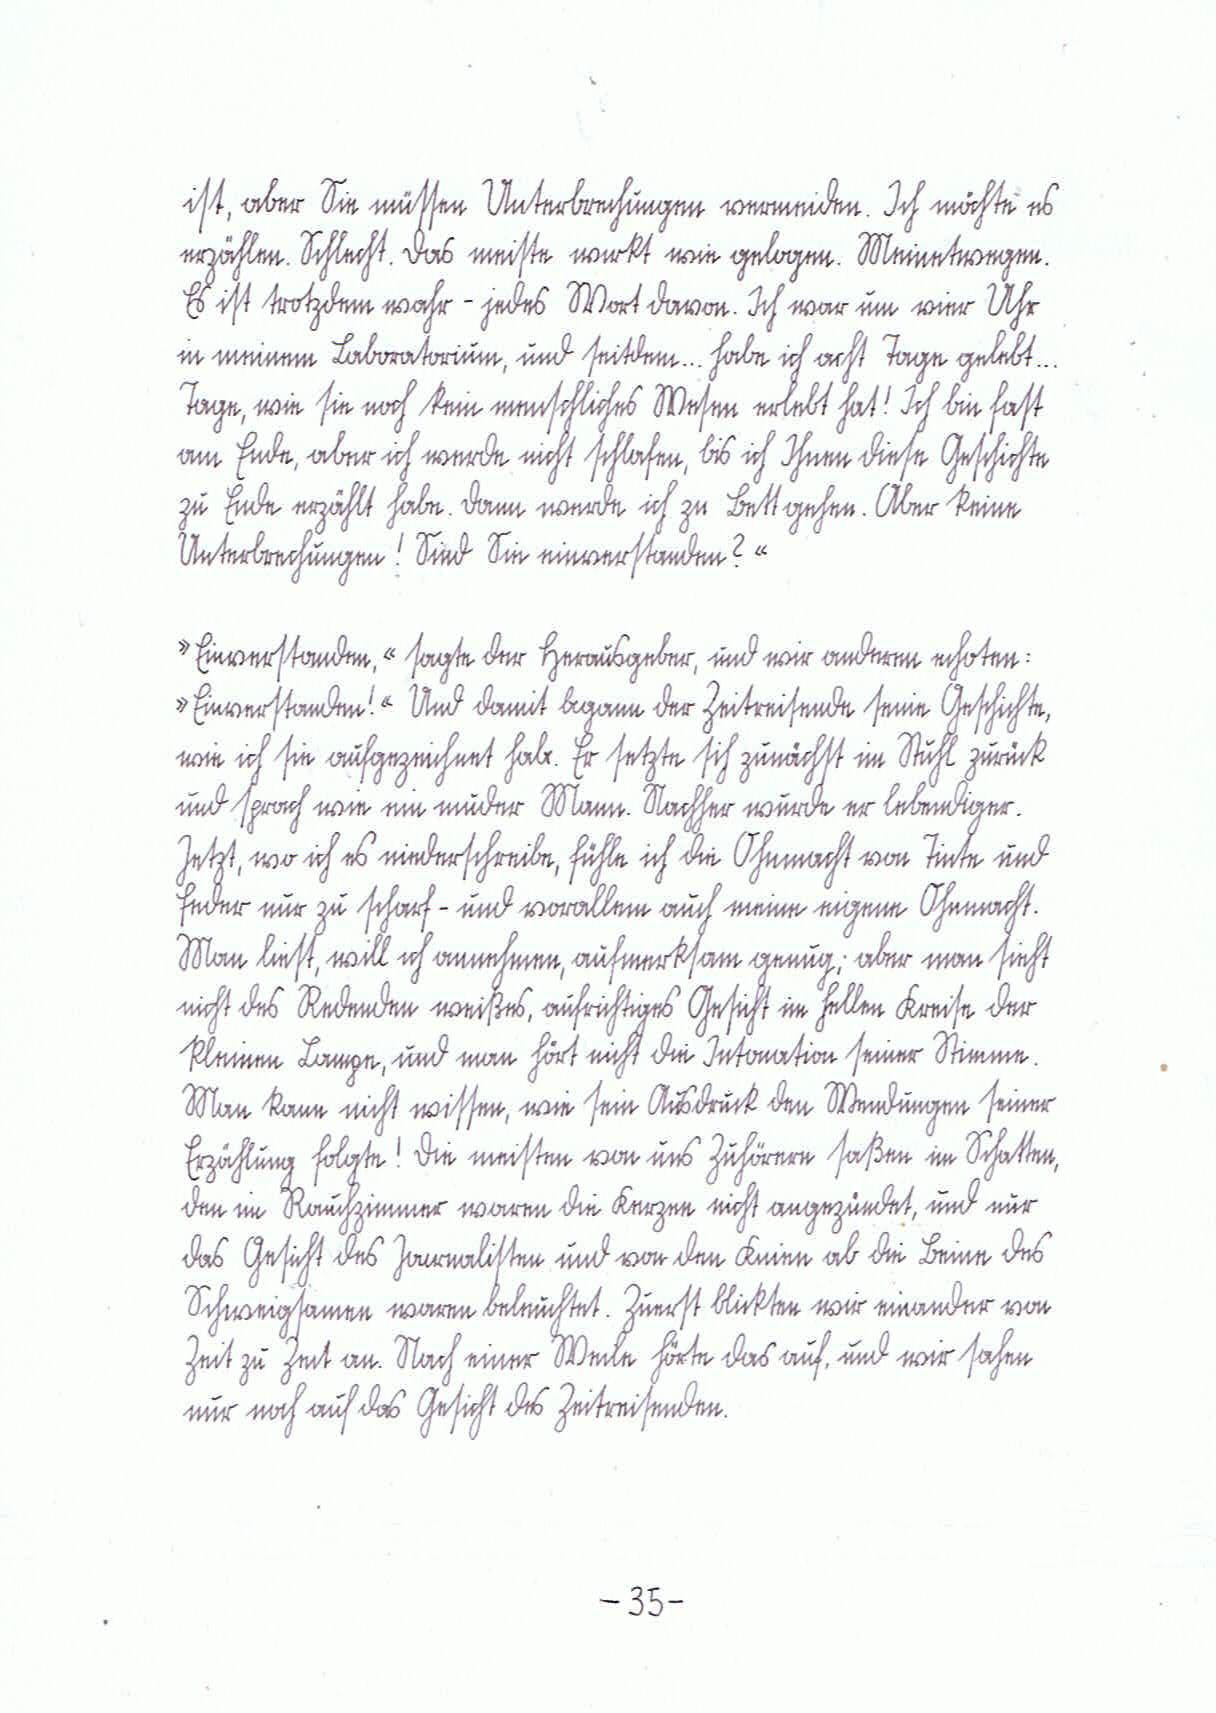 ist, aber Sie müssen Unterbrechungen vermeiden. Ich möchte es
erzählen. Schlecht. Das meiste wirkt wie gelogen. Meinetwegen.
Es ist trotzdem wahr – jedes Wort davon. Ich war um vier Uhr
in meinem Laboratorium, und seitdem... habe ich acht Tage gelebt...
Tage, wie sie noch kein menschliches Wesen erlebt hat! Ich bin fast
am Ende, aber ich werde nicht schlafen, bis ich Ihnen diese Geschichte
zu Ende erzählt habe. Dann werde ich zu Bett gehen. Aber keine
Unterbrechungen! Sind Sie einverstanden?«
»Einverstanden,« sagte der Herausgeber, und wir anderen echoten:
»Einverstanden!« Und damit begann der Zeitreisende seine Geschichte,
wie ich sie aufgezeichnet habe. Er setzte sich zunächst im Stuhl zurück
und sprach wie ein müder Mann. Nachher wurde er lebendiger.
Jetzt, wo ich es niederschreibe, fühle ich die Ohnmacht von Tinte und
Feder nur zu scharf – und vorallem auch meine eigene Ohnmacht.
Man liest, will ich annehmen, aufmerksam genug; aber man sieht
nicht des Redenden weißes, aufrichtiges Gesicht im hellen Kreise der
kleinen Lampe, und man hört nicht die Intonation seiner Stimme.
Man kann nicht wissen, wie sein Ausdruck den Wendungen seiner
Erzählung folgte! Die meisten von uns Zuhörern saßen im Schatten,
den im Rauchzimmer waren die Kerzen nicht angezündet, und nur
das Gesicht des Journalisten und von den Knien ab die Beine des
Schweigsamen waren beleuchtet. Zuerst blickten wir einander von
Zeit zu Zeit an. Nach einer Weile hörte das auf, und wir sahen
nur noch auf das Gesicht des Zeitreisenden.
– 35 –